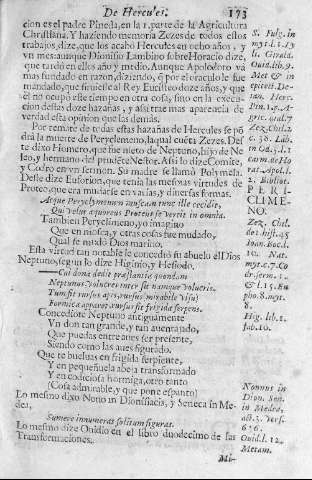 De Hercules. 173
cion es el padre Pineda, en la 1. parte de la Agricultura
Christiana. Y haziendo memoria Zezes de todos estos
trabajos, dize, que los acabó Hercules en ocho años, y
vn mes: aunque Dionisio Lambino sobre Horacio dize,
que tardó en ellos año y medio. Aunque Apolodoro vá
mas fundado en razon, diziendo, que por el oraculo le fue
mandado, que siruiesse al Rey Euristeo doze años, y que
el no ocupó este tiempo en otra cosa, sino en la execu-
cion destas doze hazañas, y assi trae mas aparencia de
verdad esta opinion que las demás.
Por remate de todas estas hazañas de Hercules se pō
drá la muerte de Peryclimeno, la qual cuēta Zezes. Del
te dixo Homero, que fue nieto de Neptuno, hijo de Ne-
leo, y hermano del prudēte Nestor. Assi lo dize Comite,
y Codro en vn sermon. Su madre se llamó Polymela.
Deste dize Euforion, que tenia las mesmas virtudes de
Proteo, que era mudarse en varias, y diuersas formas.
Atque Peryclymenum muscam tunc ille cecidit,
Qui velut aquoreus Proteus se vertit in omnia.
Tambien Peryclimeno, yo imagino
Que en mosca, y otras cosas fue mudado,
Qual se mudó Dios marino.
Esta virtud tan notable le concedió su abuelo el Dios
Neptuno, segun lo dize Higinio, y Hesiodo.
Cui dona dedit præstantia quondam
Neptunus, volucres inter sit nanque volucris.
Tum sit rursus apes, rursus mirabile visu)
Formica appareat rursus sit frigida serpens.
Concediole Neptuno antiguamente
Vn don tan grande, y tan auentajado,
Que puedas entre aues ser presente,
Siendo como las aues figurado.
Que te bueluas en frigida serpiente,
Y en pequeñuela abeja transformado
Y en codiciosa hormiga, otro tanto
(Cosa admirable, y que pone espanto)
Lo mesmo dixo Nono in Dionisiacis, y Seneca in Me-
dea,
Sumere innumeras solitum figuras.
Lo mesmo dize Ouidio en el libro duodecimo de las
Transformaciones.
Mi-
S. Fulg. in
myt. l. 1. 3
li. Girald.
Ouid. lib. 9.
Met & in
epect. 1. De-
ian. Herc.
Pin. 1. p. A-
gric. cuid. 7
Zez. Chil. 2
c. 36. Lāb.
in Od. 3. l. 1
carm. de Ho
rat. Apol. l.
2. Bibliot.
PERI
CLIME-
NO.
Zez. Chil.
de 2. hist. 45
Ioan. Boc. l.
10. Nat.
myt. c. 7. Co
dr. serm. 12.
& l. 15. Eu
pho. 8. myt.
8.
Hig. lib. 1.
fab. 10.
Nonnus in
Dion. Sen.
in Medea,
act. 3. vers.
636.
Ouid. l. 12.
Metam.